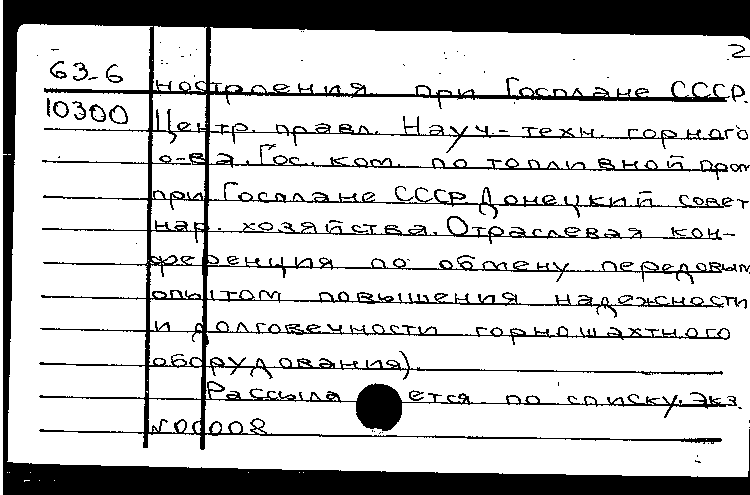 2
63-6 ностроения при Госплане СССР.
10300 Центр. правл. Науч-техн. горного
о-ва. Гос. ком. по топливной пром
при Госплане СССР Донецкий совет
нар. хозяйства. Отраслевая кон-
ференция по обмену передовым
опытом повышения надежности
и долговечности горношахтного
оборудования).
Рассылается по списку. Экз.
№00008